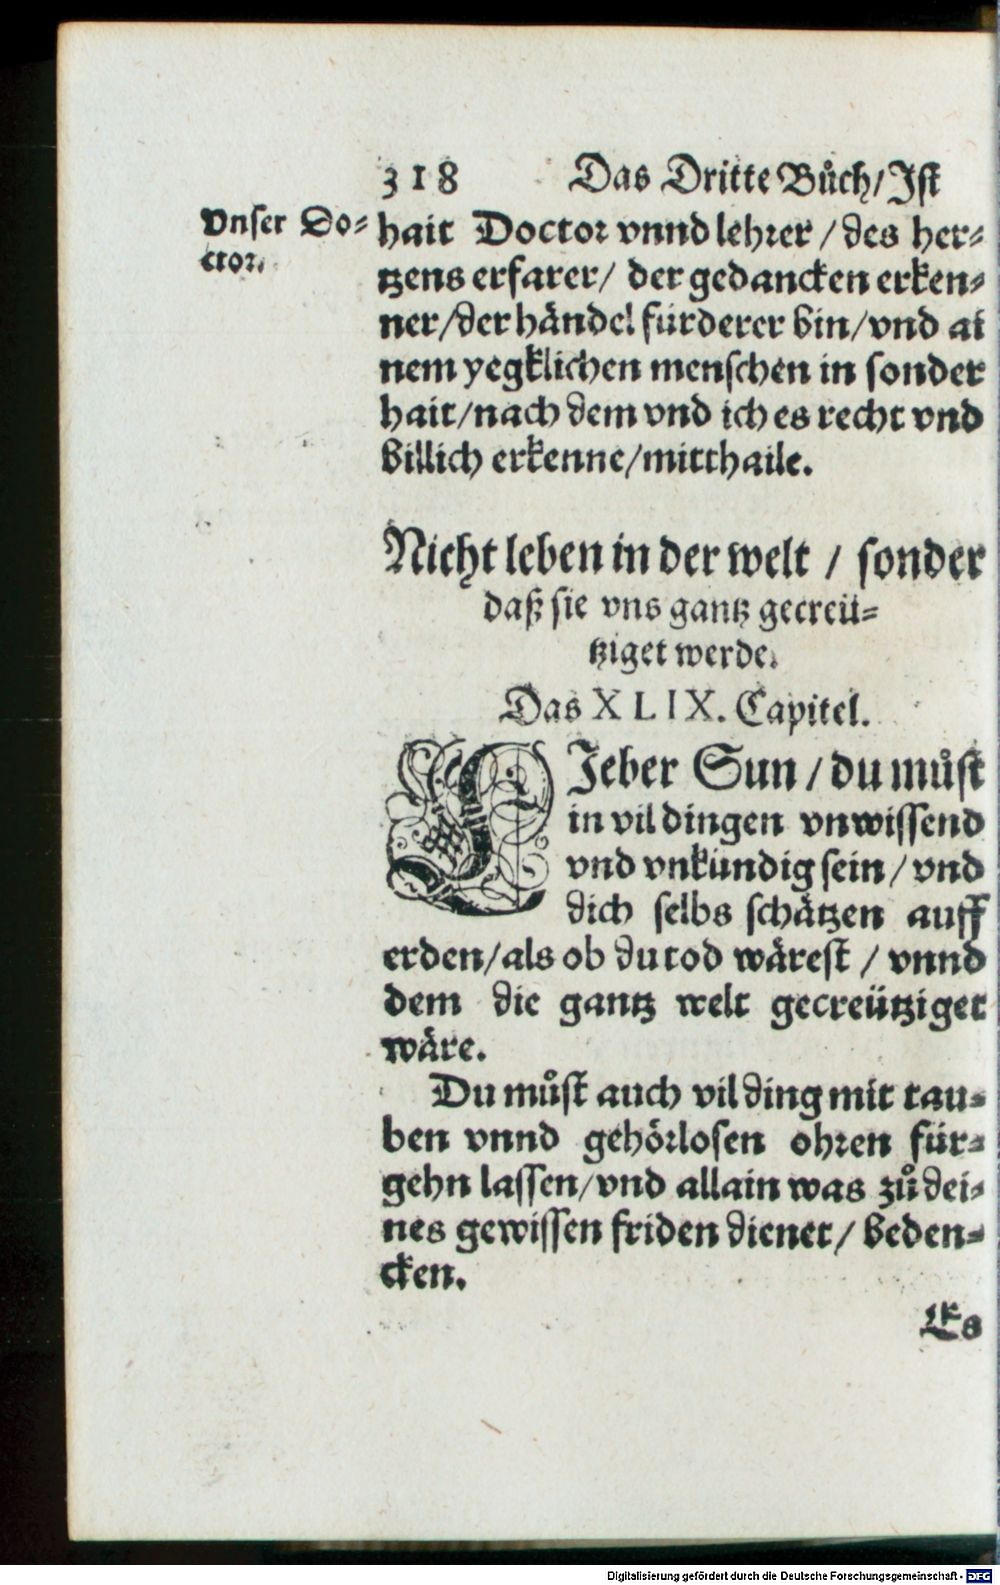 318 Das Dritte Bůch/Ist
Vnser Do=
ctor.
hait Doctor vnnd lehrer / des her=
tzens erfarer/ der gedancken erken=
ner/der händel fürderer bin/vnd ai
nem yegklichen menschen in sonder
hait/nach dem vnd ich es recht vnd
billich erkenne/mitthaile.
Nicht leben in der welt / sonder
daß sie vns gantz gecreü=
tziget werde.
Das XLIX. Capitel.
LIeber Sun / du můst
in vil dingen vnwissend
vnd vnkündig sein / vnd
dich selbs schätzen auff
erden/als ob du tod wärest / vnnd
dem die gantz welt gecreütziget
wäre.
Du můst auch vil ding mit tau=
ben vnnd gehörlosen ohren für=
gehn lassen/vnd allain was zů dei=
nes gewissen friden dienet/ beden=
cken.
Es
Digitalisierung gefördert durch die Deutsche Forschungsgemeinschaft - DFG